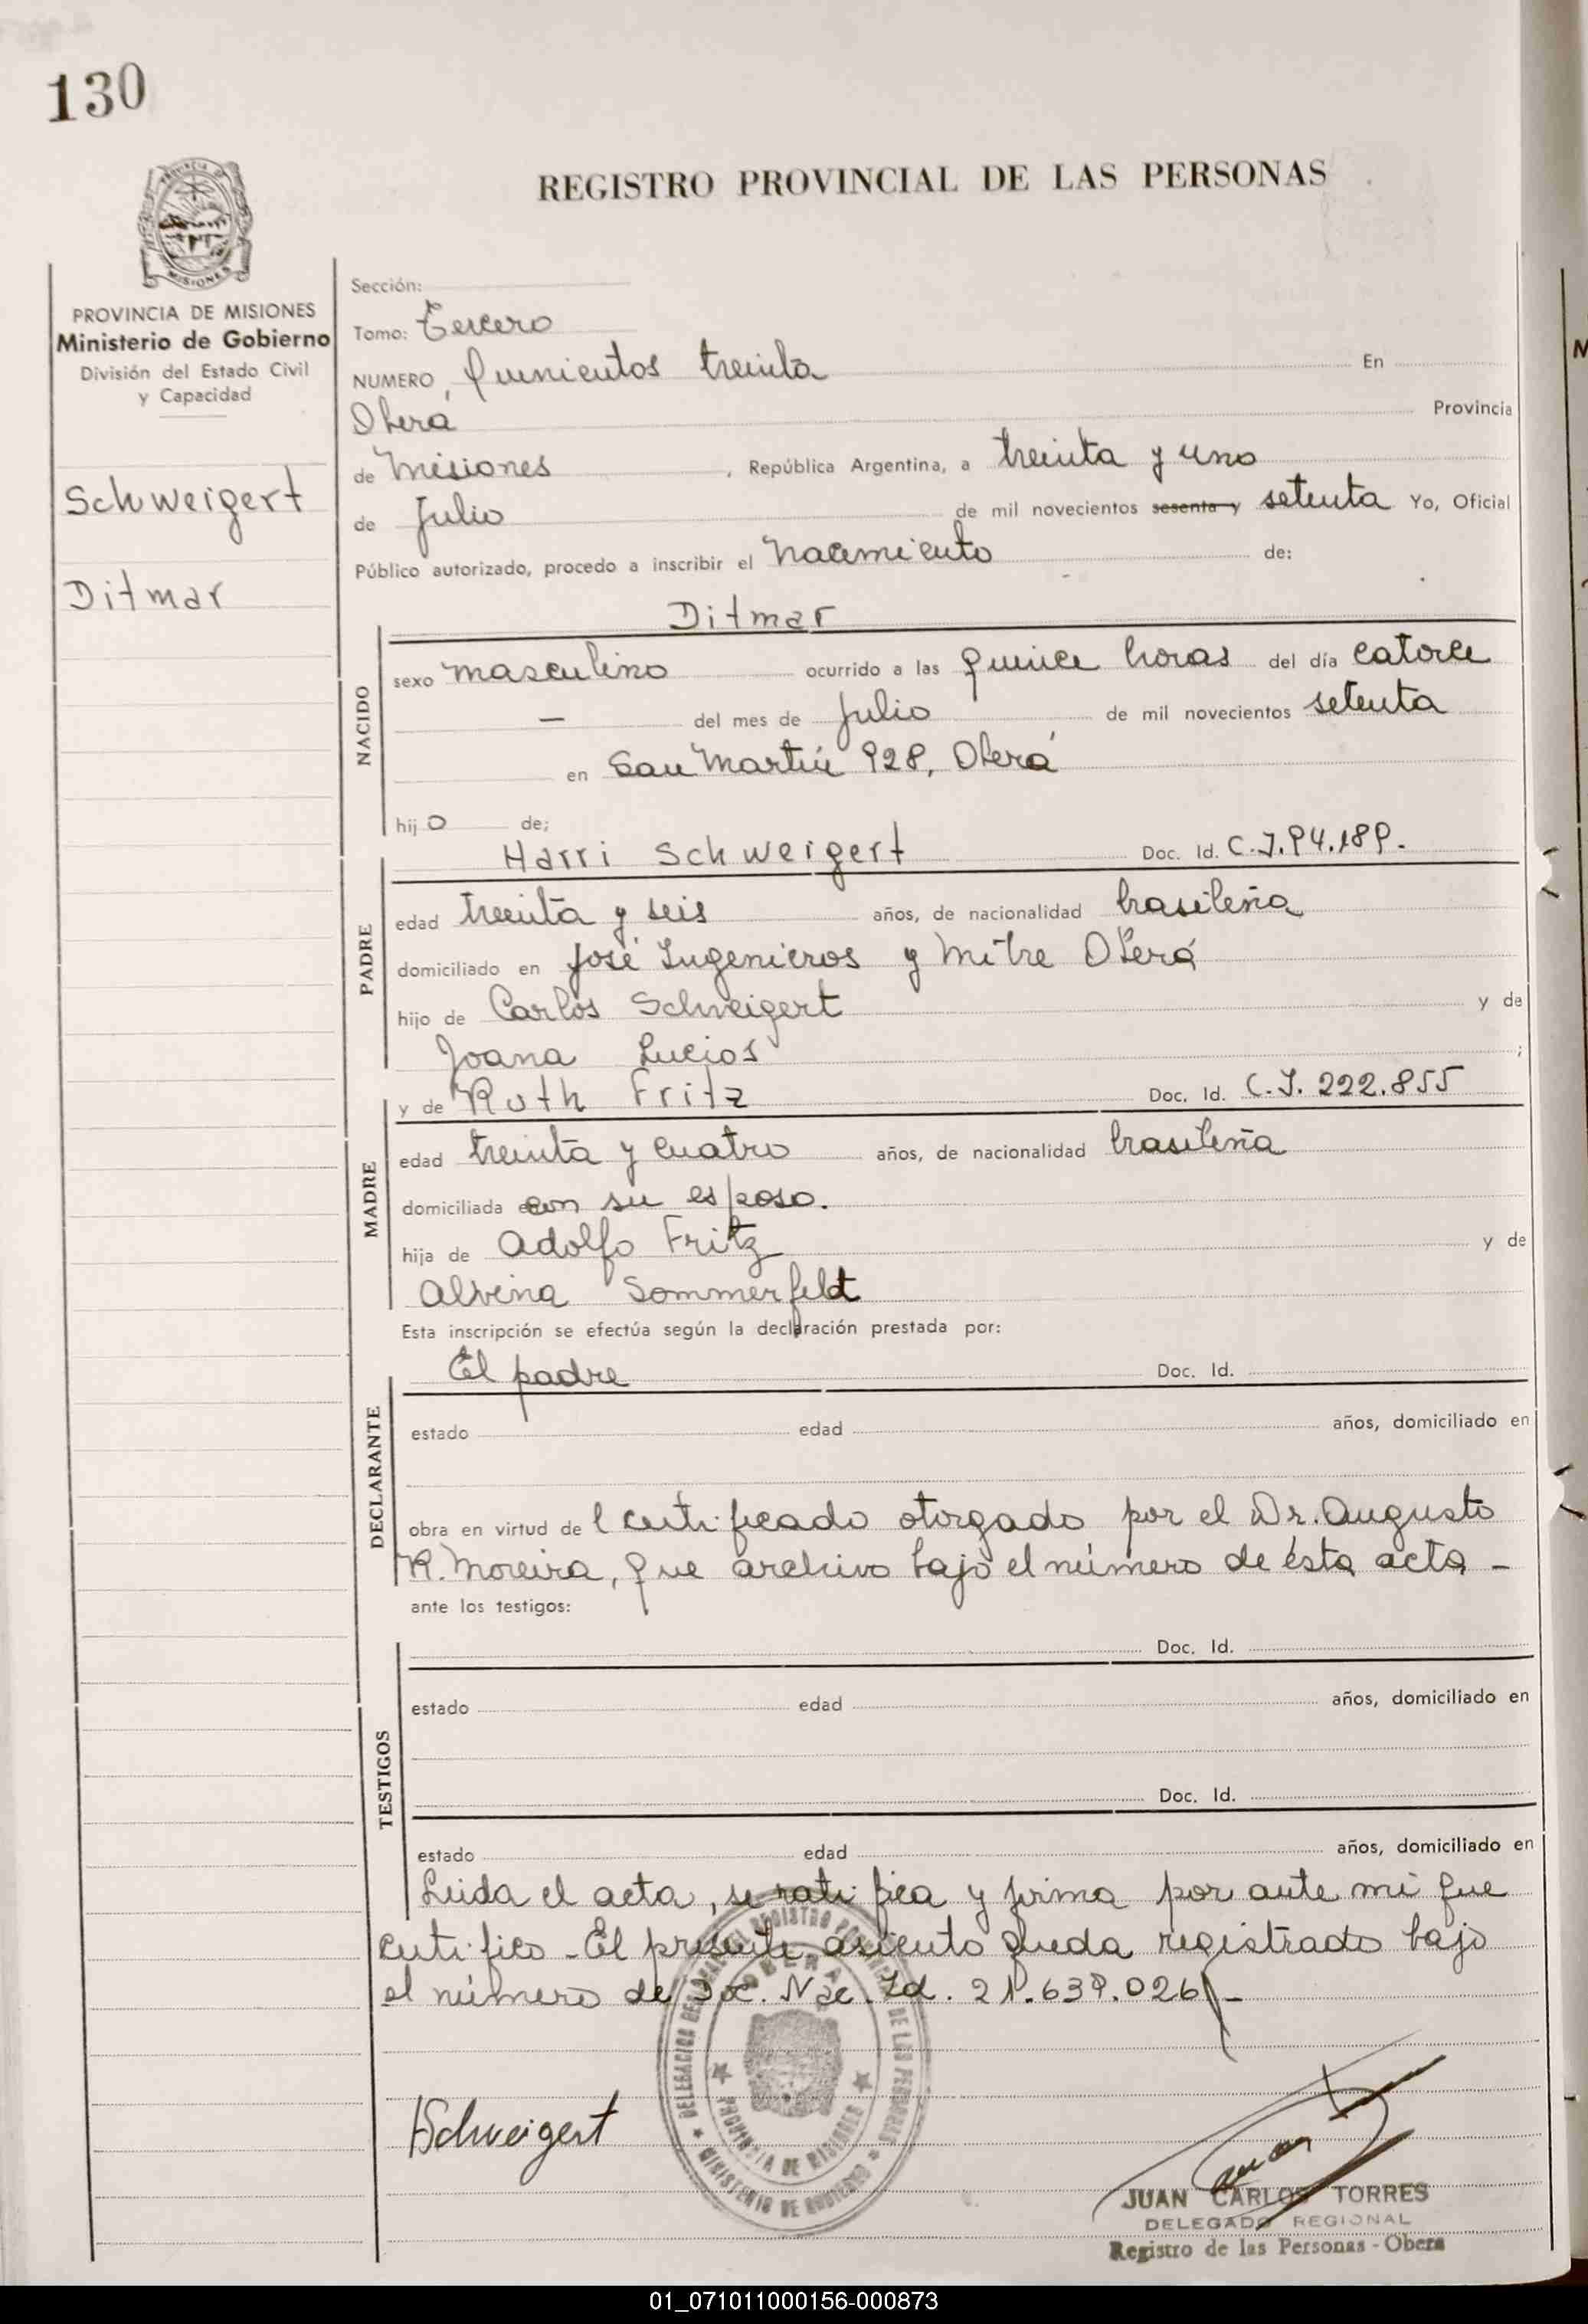 130
PROVINCIA DE MISIONES
Ministerio de Gobierno
División del Estado Civil
y Capacidad
Schweigert
Ditmar
REGISTRO PROVINCIAL DE LAS PERSONAS
Sección:
Tomo: Tercero
NUMERO Quinientos treinta En
Oberá Provincia
de Misiones, República Argentina, a treinta y uno
de Julio de mil novecientos sesenta y setenta Yo, Oficial
Público autorizado, procedo a inscribir el nacimiento de:
Ditmar
NACIDO
sexo masculino ocurrido a las quince horas del día catorce
— del mes de Julio de mil novecientos setenta
en San Martín 928, Oberá
hijo de;
Harri Schweigert Doc. Id. C.I. 94.189.
PADRE
edad treinta y seis años, de nacionalidad brasileña
domiciliado en José Ingenieros y Mitre Oberá
hijo de Carlos Schweigert y de
Joana Lucios ;
y de Ruth Fritz Doc. Id. C.I. 222.855
MADRE
edad treinta y cuatro años, de nacionalidad brasileña
domiciliada con su esposo.
hija de Adolfo Fritz y de
Alvina Sommerfeldt
Esta inscripción se efectúa según la declaración prestada por:
El padre Doc. Id.
DECLARANTE
estado edad años, domiciliado en
obra en virtud del certificado otorgado por el Dr. Augusto
R. Moreira, que archivo bajo el número de ésta acta -
ante los testigos:
Doc. Id.
TESTIGOS
estado edad años, domiciliado en
Doc. Id.
estado edad años, domiciliado en
Leida el acta, se ratifica y firma por ante mi que
certifico - El presente asiento queda registrado bajo
el número de Doc. Nac. Id. 21.639.026 -
DELEGACION DEL REGISTRO PROVINCIAL DE LAS PERSONAS
OBERA
PROVINCIA DE MISIONES
MINISTERIO DE GOBIERNO
HSchweigert
JUAN CARLOS TORRES
DELEGADO REGIONAL
Registro de las Personas - Obera
01_071011000156-000873